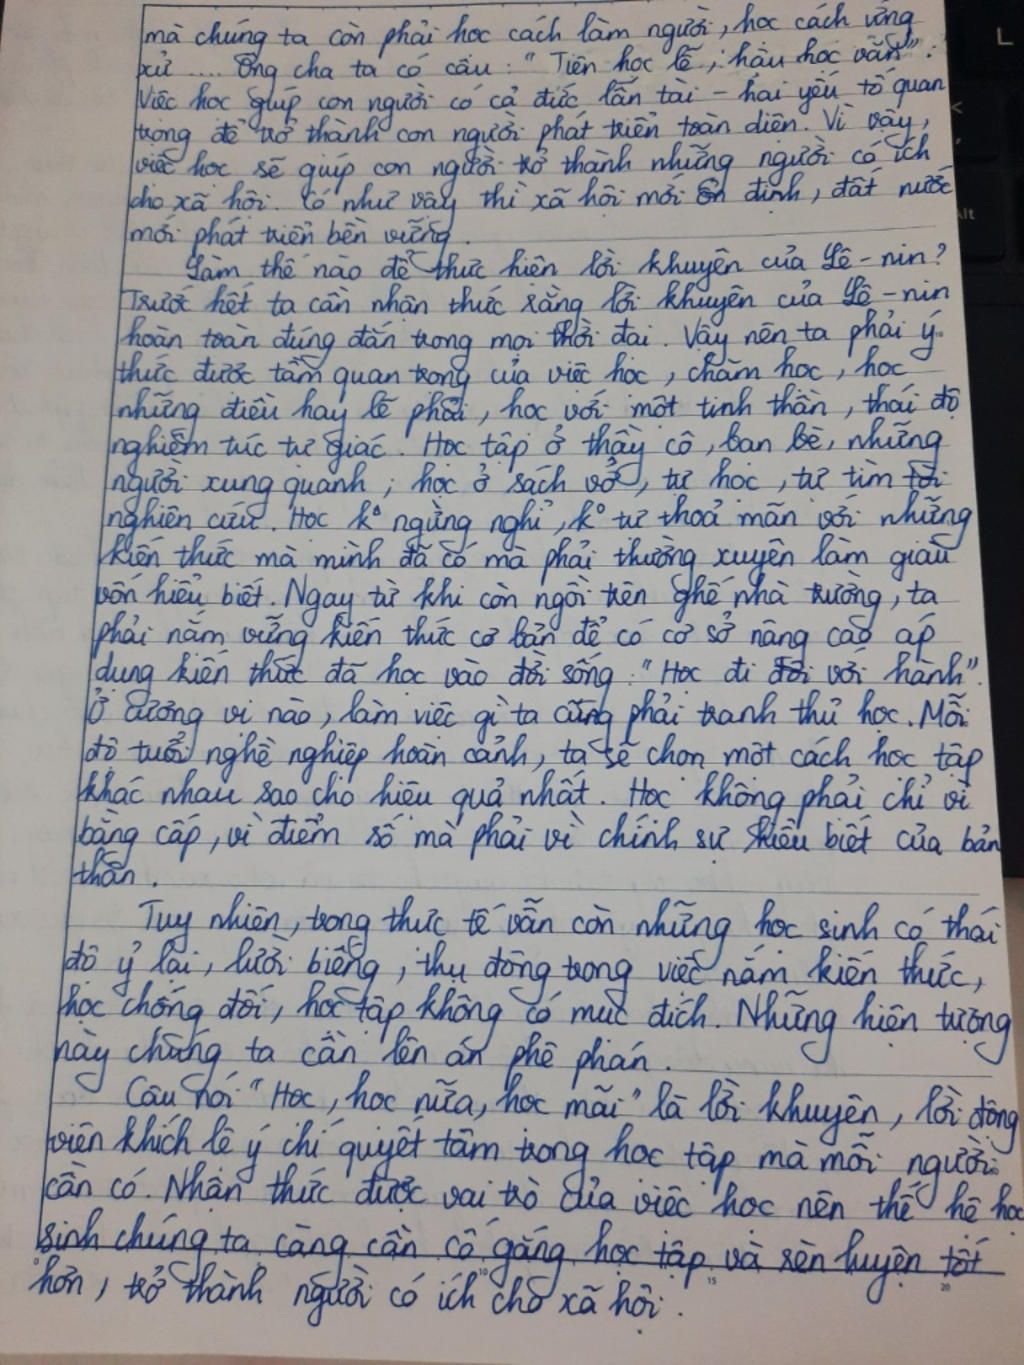 mà chúng ta còn phải học cách làm người, học cách ứng
xử .... Ông cha ta có câu : "Tiên học lễ, hậu học văn".
Việc học giúp con người có cả đức lẫn tài - hai yếu tố quan
trọng để trở thành con người phát triển toàn diện. Vì vậy,
việc học sẽ giúp con người trở thành những người có ích
cho xã hội. Có như vậy thì xã hội mới ổn định, đất nước
mới phát triển bền vững.
Làm thế nào để thực hiện lời khuyên của Lê-nin?
Trước hết ta cần nhận thức rằng lời khuyên của Lê-nin
hoàn toàn đúng đắn trong mọi thời đại. Vậy nên ta phải ý
thức được tầm quan trọng của việc học, chăm học, học
những điều hay lẽ phải, học với một tinh thần, thái độ
nghiêm túc tự giác. Học tập ở thầy cô, bạn bè, những
người xung quanh; học ở sách vở, tự học, tự tìm tòi
nghiên cứu. Học k° ngừng nghỉ, k° tự thoả mãn với những
kiến thức mà mình đã có mà phải thường xuyên làm giàu
vốn hiểu biết. Ngay từ khi còn ngồi trên ghế nhà trường, ta
phải nắm vững kiến thức cơ bản để có cơ sở nâng cao áp
dụng kiến thức đã học vào đời sống : "Học đi đôi với hành".
Ở cương vị nào, làm việc gì ta cũng phải tranh thủ học. Mỗi
độ tuổi nghề nghiệp hoàn cảnh, ta sẽ chọn một cách học tập
khác nhau sao cho hiệu quả nhất. Học không phải chỉ vì
bằng cấp, vì điểm số mà phải vì chính sự hiểu biết của bản
thân.
Tuy nhiên, trong thực tế vẫn còn những học sinh có thái
độ ỷ lại, lười biếng, thụ động trong việc nắm kiến thức,
học chống đối, học tập không có mục đích. Những hiện tượng
này chúng ta cần lên án phê phán.
Câu nói "Học, học nữa, học mãi" là lời khuyên, lời động
viên khích lệ ý chí quyết tâm trong học tập mà mỗi người
cần có. Nhận thức được vai trò của việc học nên thế hệ học
sinh chúng ta càng cần cố gắng học tập và rèn luyện tốt
hơn, trở thành người có ích cho xã hội.